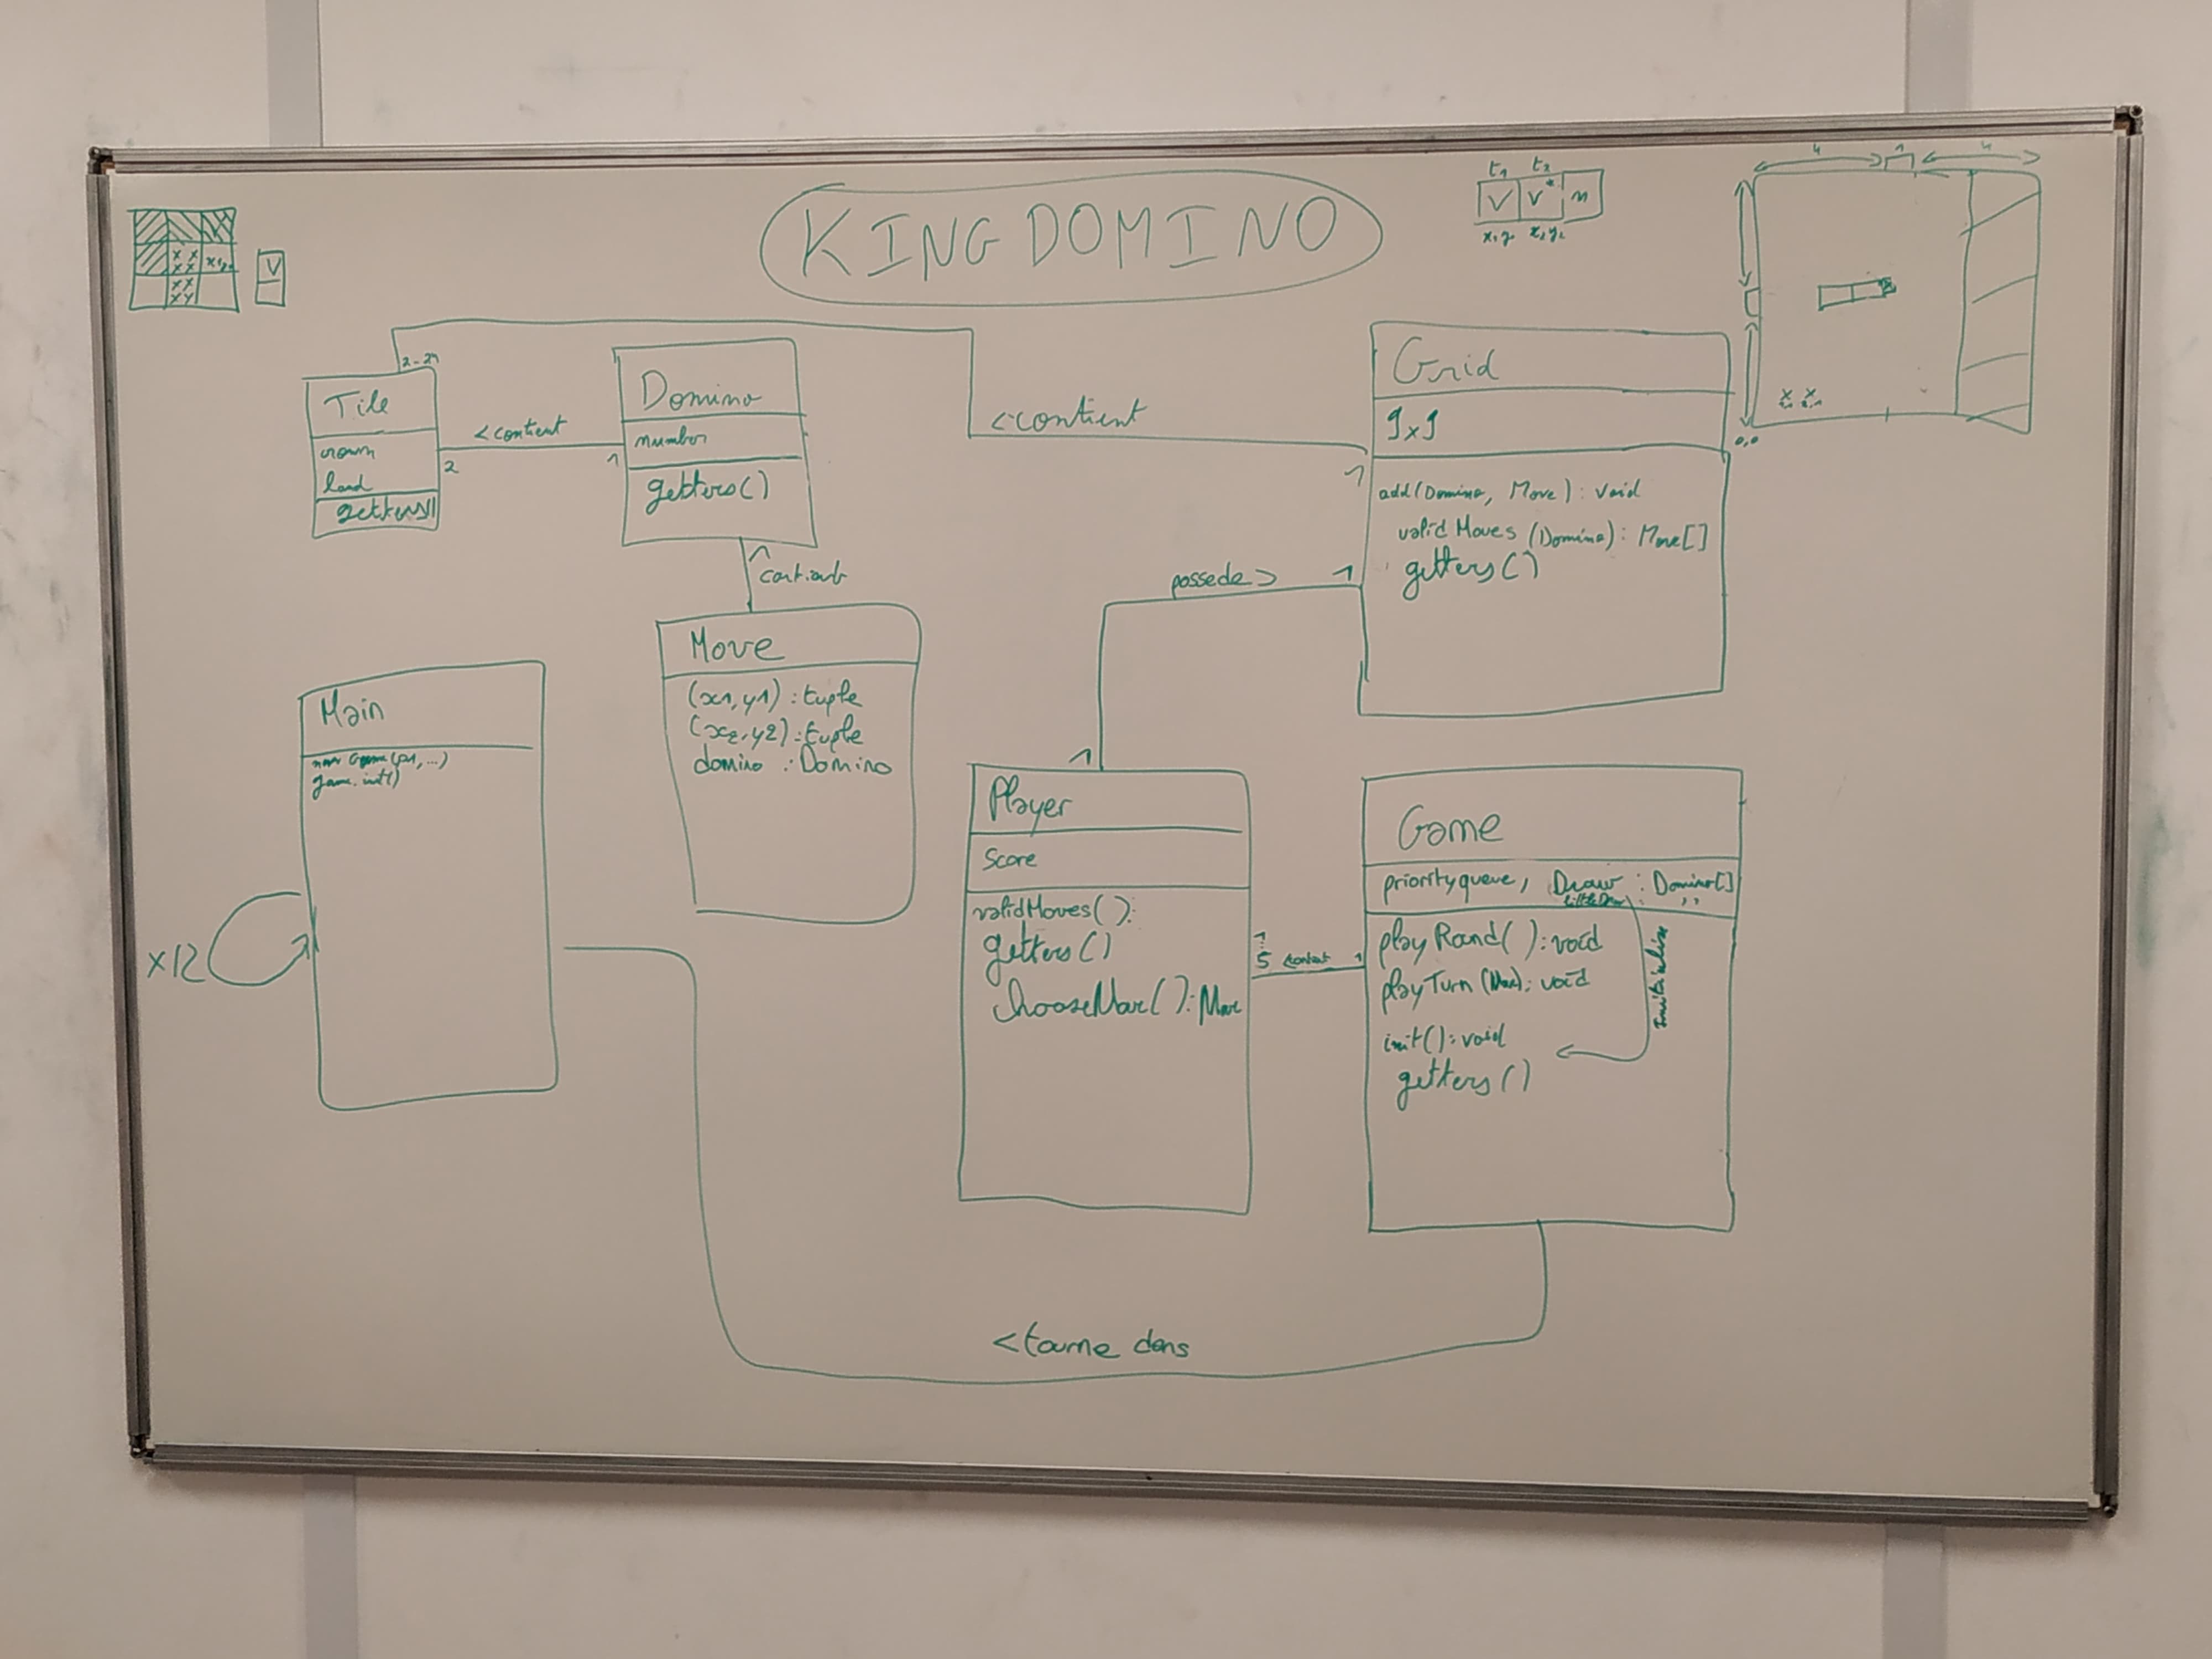 KINGDOMINO
t1 t2
V V* n
x1y1 x2y2
4 1 4
0,0
x x
x x x x
x x
x y
V
2-2n
Tile
crown
land
getters()
<contient
2 1
Domino
number
getters()
<contient
1
Grid
9x9
add(Domino, Move): void
validMoves (Domino): Move[]
getters()
^
contient
possede >
1
1
Move
(x1,y1) : tuple
(x2,y2) : tuple
domino : Domino
Main
new Game(p1, ...)
game.init()
x12
Player
Score
validMoves():
getters()
chooseMove(): Move
1
5 <contient 1
Game
priorityqueue, Draw : Domino[]
littleDraw : ,,
playRound(): void
playTurn (Move): void
init(): void
getters()
Initialise
<tourne dans